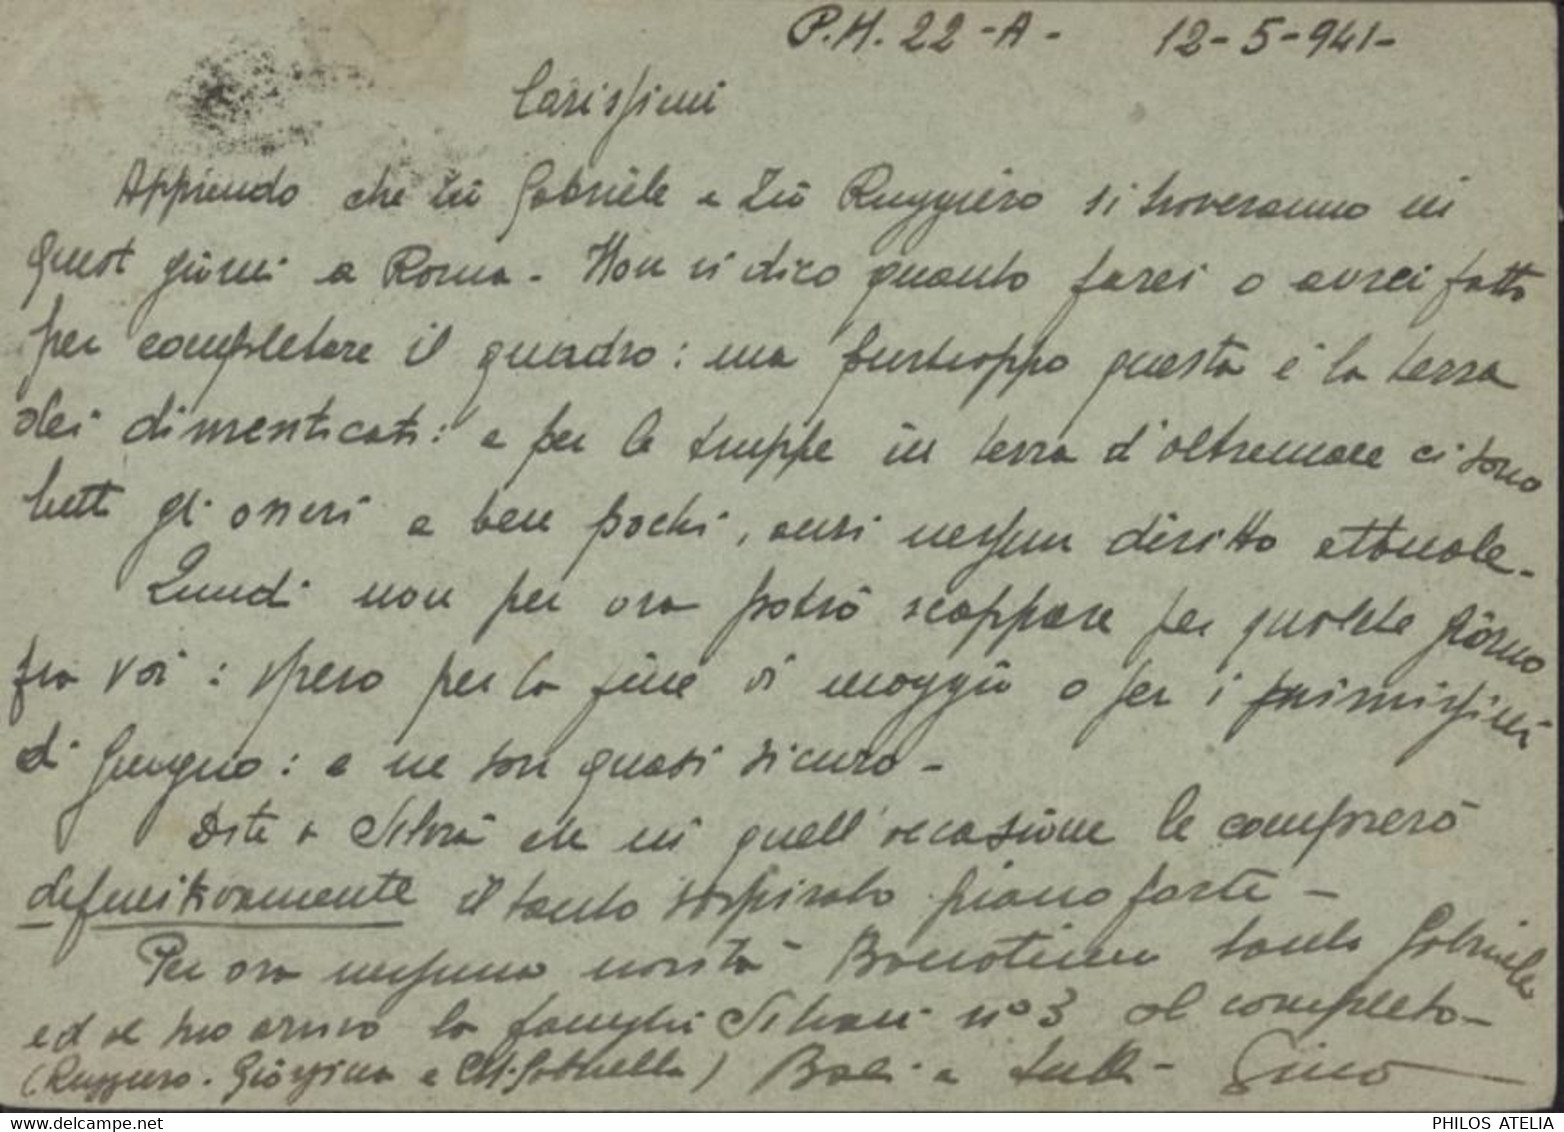 P.M. 22-A- 12-5-941-
Carissimi
Apprendo che Zio Gabriele e Zio Ruggiero si troveranno in
questi giorni a Roma - Non vi dico quanto farei o avrei fatto
per completare il quadro: ma purtroppo questa è la terra
dei dimenticati: e per le truppe in terra d'oltremare ci sono
tutti gli oneri e ben pochi, anzi nessun diritto attuale-
Quindi non per ora potrò scappare per qualche giorno
fra voi: spero per la fine di maggio o per i primissimi
di Giugno: e ne son quasi sicuro-
Dite a Silvia che in quell'occasione le comprerò
definitivamente il tanto sospirato pianoforte-
Per ora nessuna novità Gabriele
ed al suo arrivo la famiglia n° 3 al completo-
(Ruggiero. Giorgina e M. Gabriella) Baci a tutti- Gino
PHILOS ATELIA